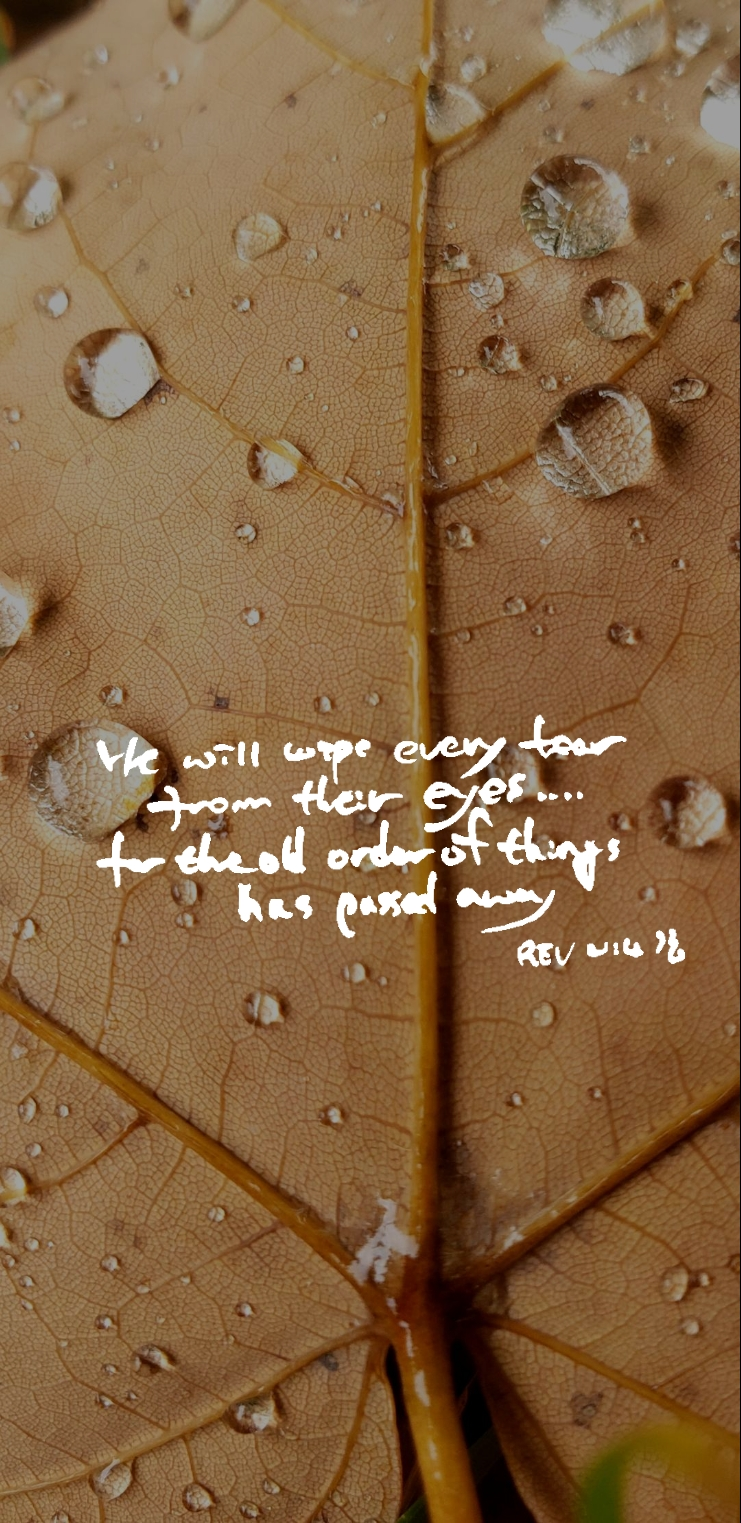 He will wipe every tear
from their eyes....
for the old order of things
has passed away
REV